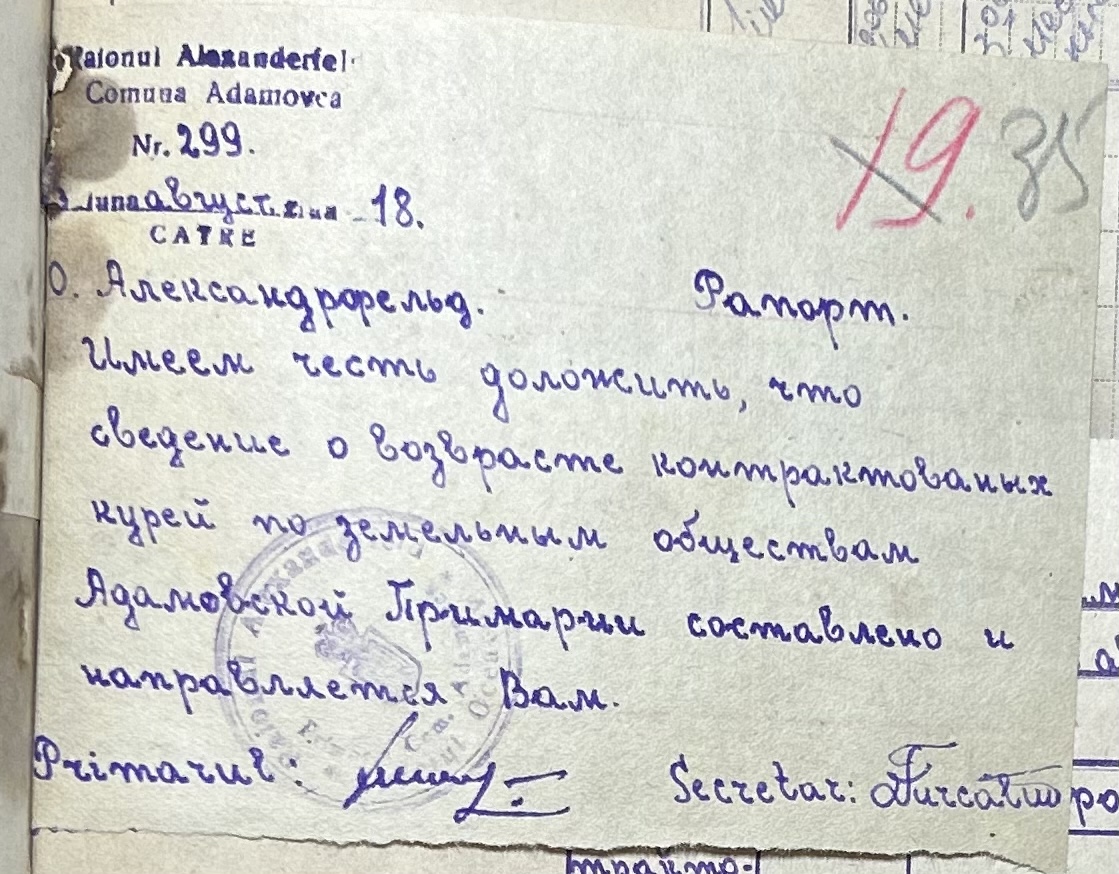 Raionul Alexanderfel
Comuna Adamovca
Nr. 299.
Luna август. Ziua 18.
CATRE
19. 35
О. Александрфельд. Рапорт.
Имеем честь доложить, что
сведение о возврасте контрактованых
курей по земельным обществам
Адамовской Примарии составлено и
направляется Вам.
Primarul:
Secretar: